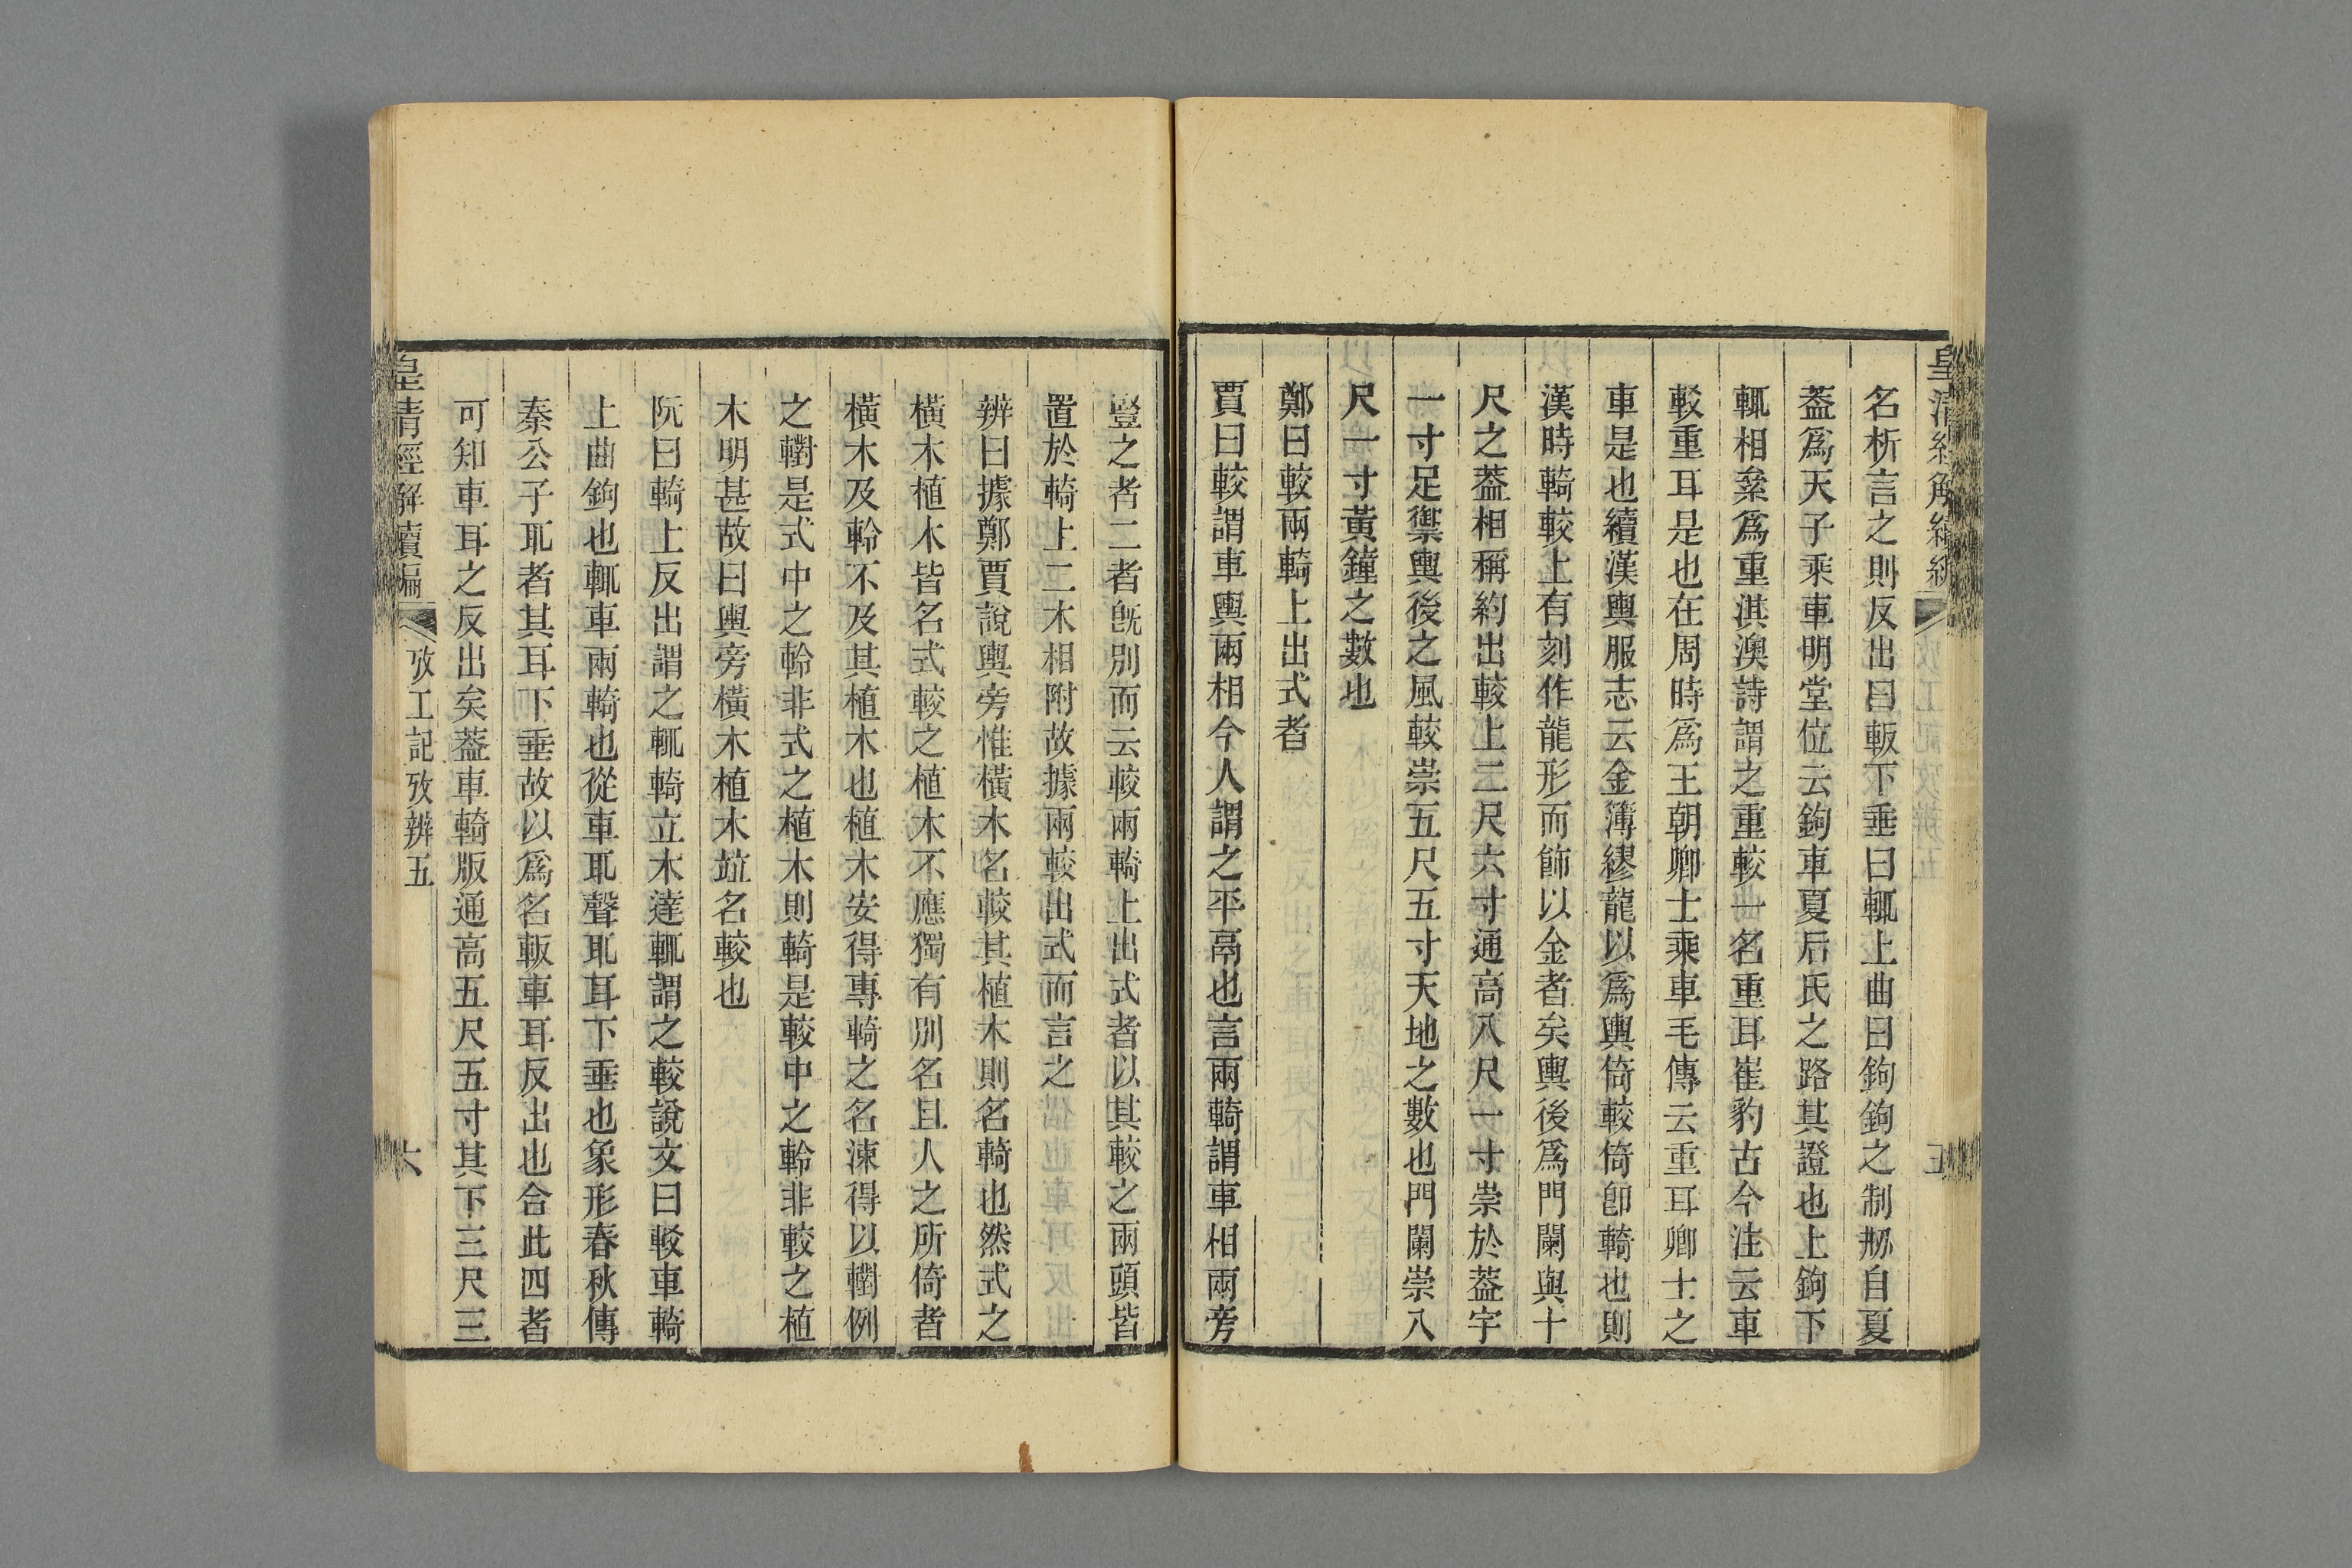 皇清經解續編
名析言之則反出曰𨋘下垂曰輒上曲曰鉤鉤之制刱自夏
葢爲天子乘車明堂位云鉤車夏后氏之路其證也上鉤下
輒相絫爲重淇澳詩謂之重較一名重耳崔豹古今注云車
較重耳是也在周時爲王朝卿士乘車毛傳云重耳卿士之
車是也續漢輿服志云金薄繆龍以爲輿倚較倚卽輢也則
漢時輢較上有刻作龍形而飾以金者矣輿後爲門闑與十
尺之葢相稱約出較上二尺六寸通高八尺一寸崇於葢宇
一寸足禦輿後之風較崇五尺五寸天地之數也門闑崇八
尺一寸黃鐘之數也
鄭曰較兩輢上出式者
賈曰較謂車輿兩相今人謂之平鬲也言兩輢謂車相兩旁
豎之者二者旣別而云較兩輢上出式者以其較之兩頭皆
置於輢上二木相附故據兩較出式而言之
辨曰據鄭賈說輿旁惟橫木名較其植木則名輢也然式之
橫木植木皆名式較之植木不應獨有別名且人之所倚者
橫木及軨不及其植木也植木安得專輢之名涷得以轛例
之轛是式中之軨非式之植木則輢是較中之軨非較之植
木明甚故曰輿旁橫木植木竝名較也
阮曰輢上反出謂之輒輢立木達輒謂之較說文曰較車輢
上曲鉤也輒車兩輢也從車耴聲耴耳下垂也象形春秋傳
秦公子耴者其耳下垂故以爲名𨋘車耳反出也合此四者
可知車耳之反出矣葢車輢版通高五尺五寸其下三尺三
皇清經解續編
攷工記攷辨五
六